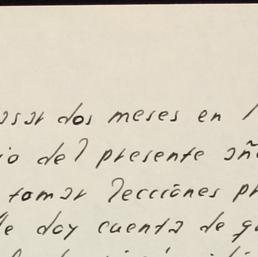 asar dos meses en
io del presente año
tomar lecciones pr
le doy cuenta de qu